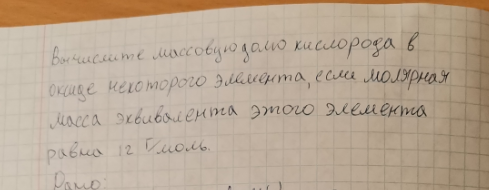 Вычислите массовую долю кислорода в
оксиде некоторого элемента, если молярная
масса эквивалента этого элемента
равна 12 г/моль.
Дано: